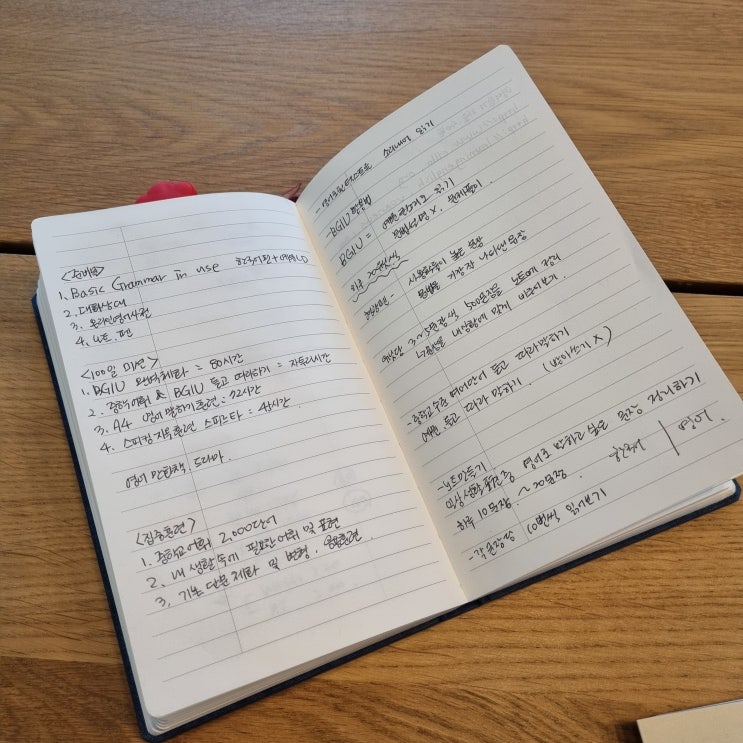 <준비물>
1. Basic Grammar in use 한국어판 + 어플 LD
2. 대화상대
3. 온라인영어사전
4. 노트. 펜
<100일 미션>
1. BGIU 완벽체화 = 80시간
2. 중학어휘 & BGIU 듣고 따라하기 = 자투리시간
3. A4 영어 말하기 훈련 = 72시간
4. 스피킹 지옥훈련 스피드타 = 48시간
영어 만화책, 드라마.
<집중훈련>
1. 중학교 어휘 2,000단어
2. 내 생활 속에 필요한 어휘 및 표현
3. 기초 단문 체화 및 변형. 응용훈련.
- 영어로된 텍스트를 소리내어 읽기
- BGIU 활용법
BGIU = 예문 위주로 읽기
문법설명 X. 문제풀이
하루 20문장씩
사용확률이 높은 문장
문법을 가장 잘 나타낸 문장
3~5문장씩, 500문장을 노트에 정리
내 상황에 맞게 바꾸어보기.
- 중학교 수준 영어단어 듣고 따라말하기
예문 듣고 따라 말하기. (받아쓰기 X)
- 노트만들기
일상생활 표현 중 영어로 말하고 싶은 문장 정리하기
하루 10문장 ~ 20문장. 한국어 | 영어.
- 각 문장당 10번씩 읽어보기